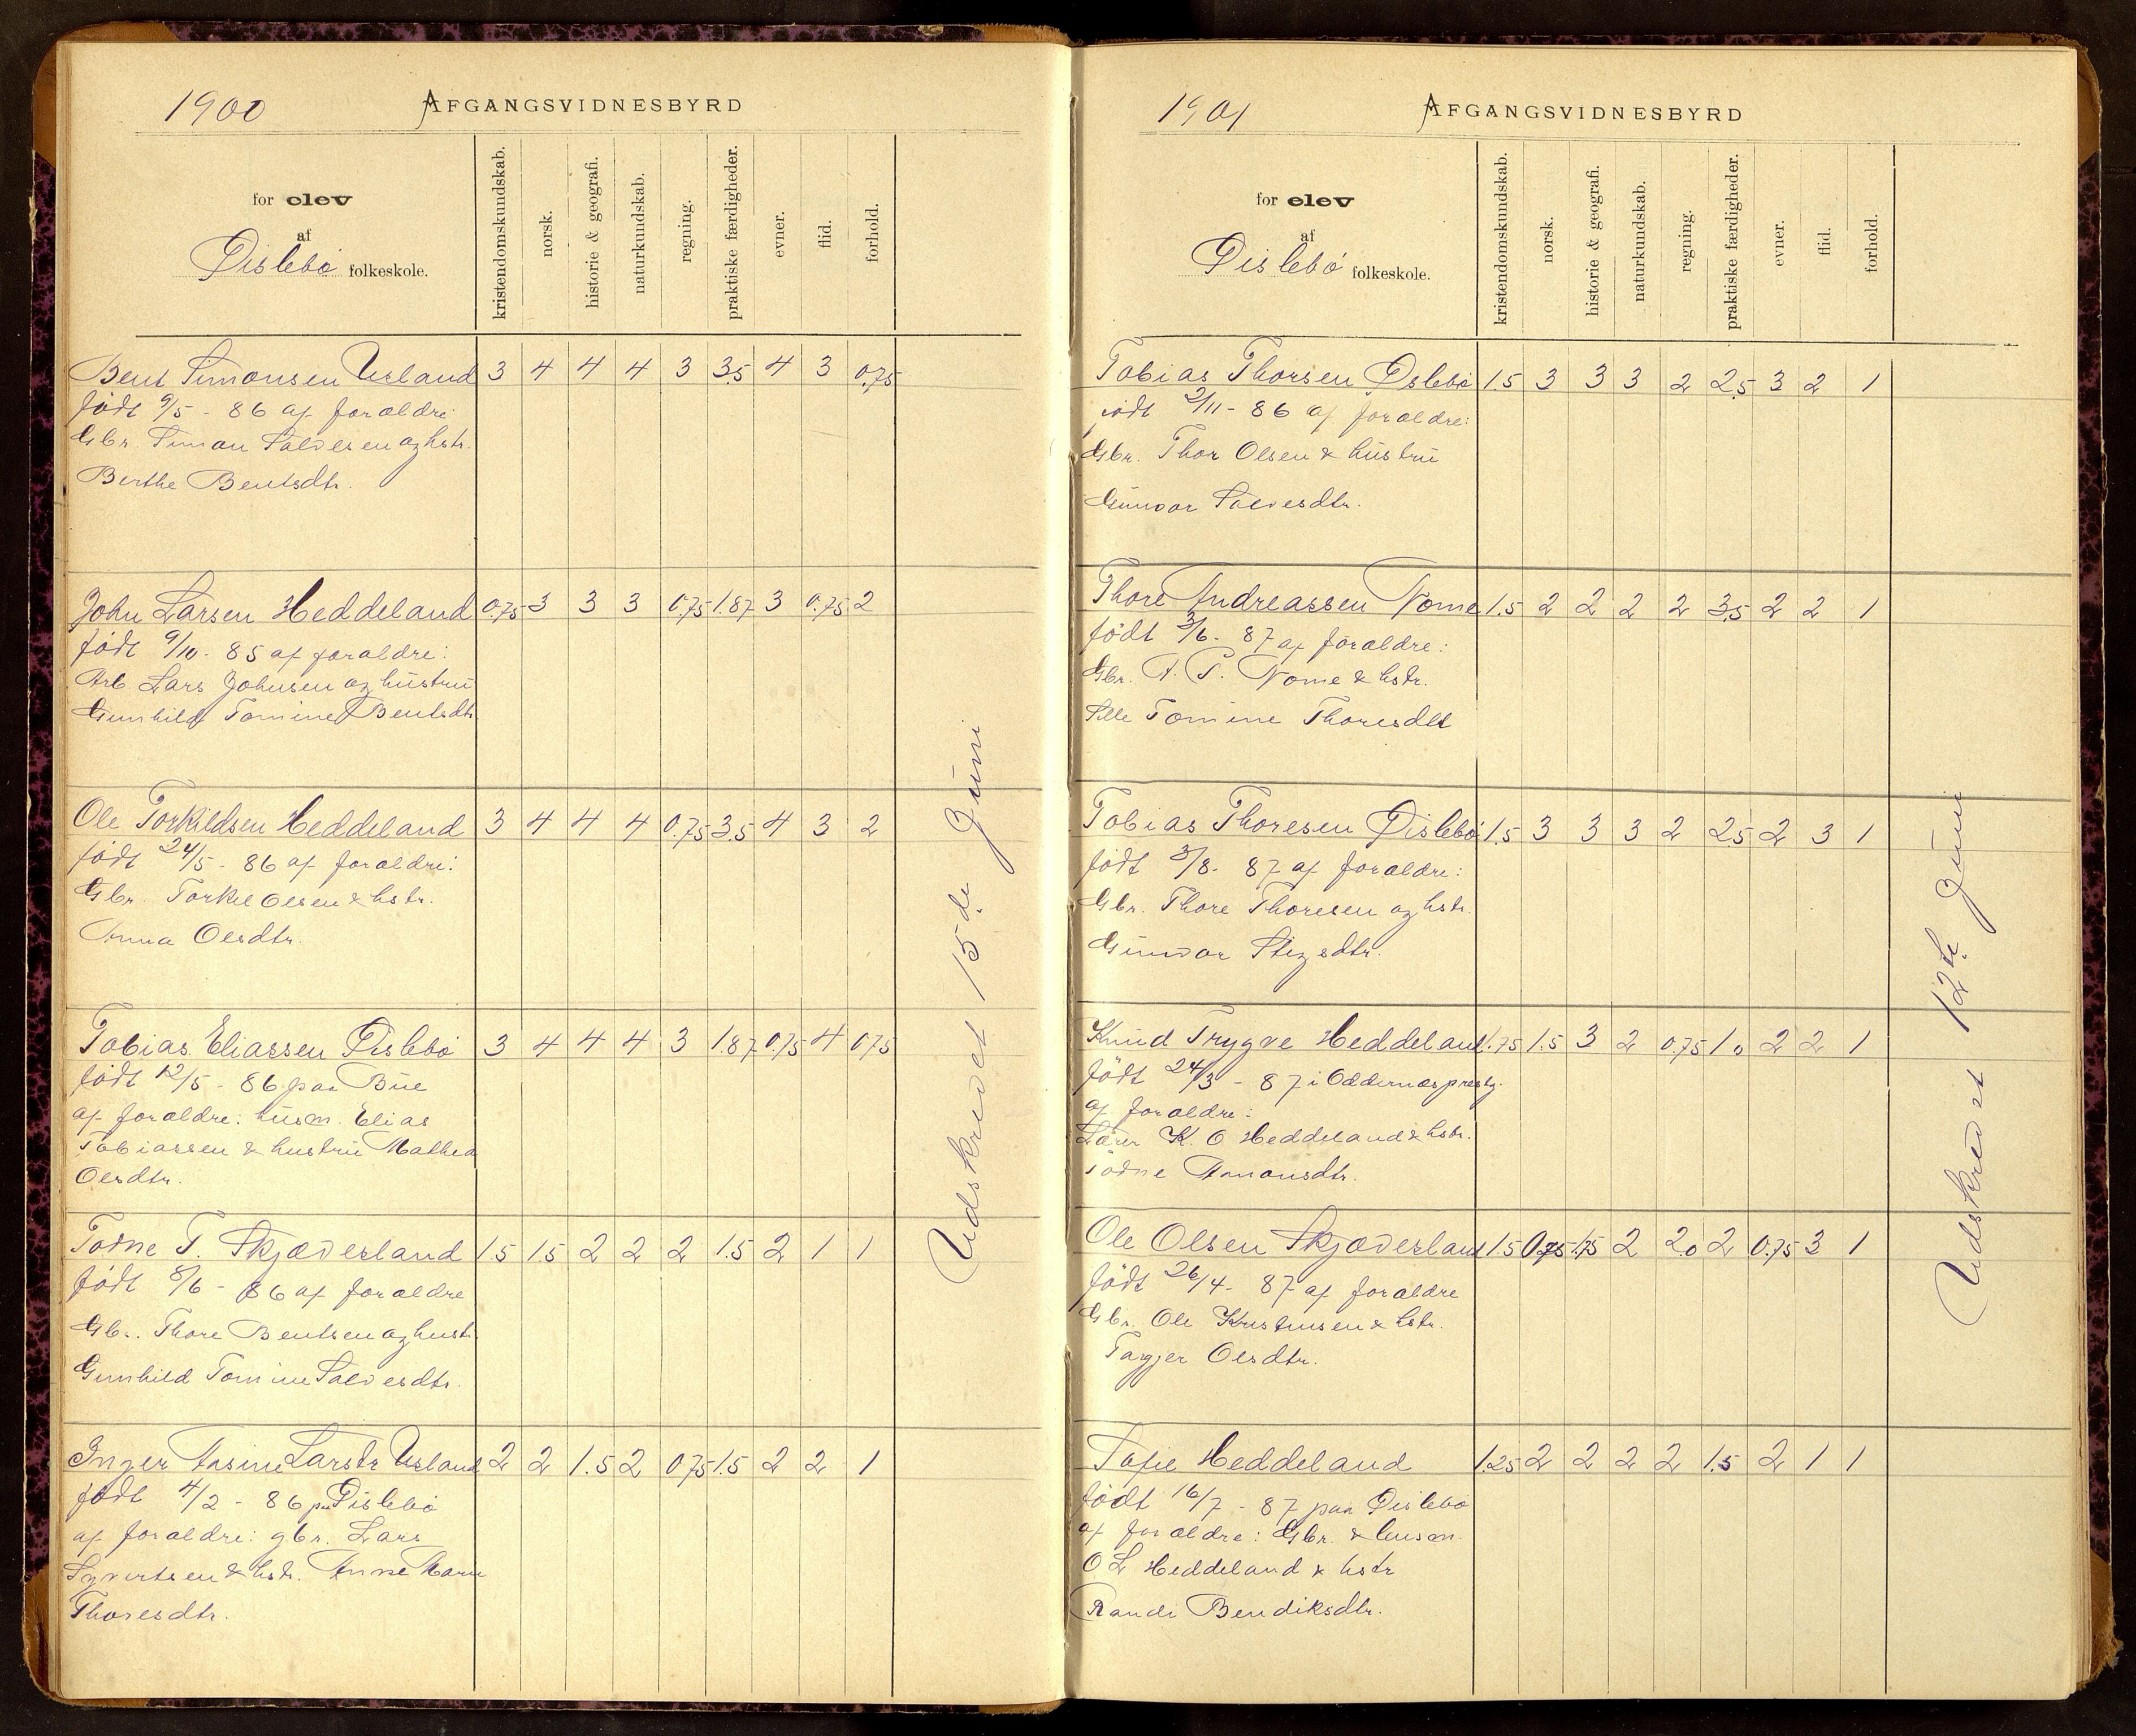 1900 AFGANGSVIDNESBYRD
for elev
af
Øislebö folkeskole.
kristendomskundskab.
norsk.
historie & geografi.
naturkundskab.
regning.
praktiske færdigheder.
evner.
flid.
forhold.
Bent Simonsen Usland 3 4 4 4 3 3.5 4 3 0.75
født 9/5 - 86 af forældre
Gbr. Simon Salvesen og hstr.
Berthe Bentsdtr.
John Larsen Heddeland 0.75 3 3 3 0.75 1.87 3 0.75 2
født 9/10 - 85 af forældre:
Arb. Lars Johnsen og hustru
Gunhild Tomine Bentsdtr
Ole Torkildsen Heddeland 3 4 4 4 0.75 3.5 4 3 2
født 24/5 - 86 af forældre:
Gbr. Torkel Olsen & hstr.
Anna Olsdtr.
Tobias Eliassen Øislebö 3 4 4 4 3 1.87 0.75 4 0.75
født 12/5 - 86 paa Bue
af forældre: husm. Elias
Tobiassen & hustru Mathea
Olsdtr.
Todne T. Skjæverland 1.5 1.5 2 2 2 1.5 2 1 1
født 8/6 - 86 af forældre
Gbr. Thore Bentsen og hust.
Gunhild Tomine Salvesdtr.
Inger Aasine Larsdtr Usland 2 2 1.5 2 0.75 1.5 2 2 1
født 4/2 - 86 paa Øislebö
af forældre: gbr. Lars
Syvertsen & hstr. Anne Marie
Thoresdtr.
Udskrevet 15de Juni
1901 AFGANGSVIDNESBYRD
for elev
af
Øislebö folkeskole.
kristendomskundskab.
norsk.
historie & geografi.
naturkundskab.
regning.
praktiske færdigheder.
evner.
flid.
forhold.
Tobias Thorsen Øslebö 1.5 3 3 3 2 2.5 3 2 1
født 2/11 - 86 af forældre:
Gbr. Thor Olsen & hustru
Gunvor Salvesdtr.
Thore Andreassen Nome 1.5 2 2 2 2 3.5 2 2 1
født 3/6 - 87 af forældre:
Gbr. A. T. Nome & hstr.
Sille Tomine Thoresdtt
Tobias Thoresen Øislebö 1.5 3 3 3 2 2.5 2 3 1
født 3/8 - 87 af forældre:
Gbr. Thore Thoresen og hstr.
Gunvor Stigsdtr.
Knud Trygve Heddeland 1.75 1.5 3 2 0.75 1.0 2 2 1
født 24/3 - 87 i Oddernæs prestg.
af forældre:
Lærer K. O Heddeland & hstr.
Todne Amonsdtr.
Ole Olsen Skjæverland 1.5 0.75 1.75 2 2.0 2 0.75 3 1
født 26/4 - 87 af forældre
Gbr. Ole Kristensen & hstr.
Targjer Olsdtr.
Sofie Heddeland 1.25 2 2 2 2 1.5 2 1 1
født 16/7 - 87 paa Øislebö
af forældre: Gbr. & husm.
O L Heddeland & hstr
Randi Bendiksdtr.
Udskrevet 12te Juni